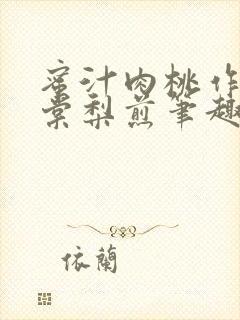 蜜汁肉桃作
棠梨煎筆趣
依蘭